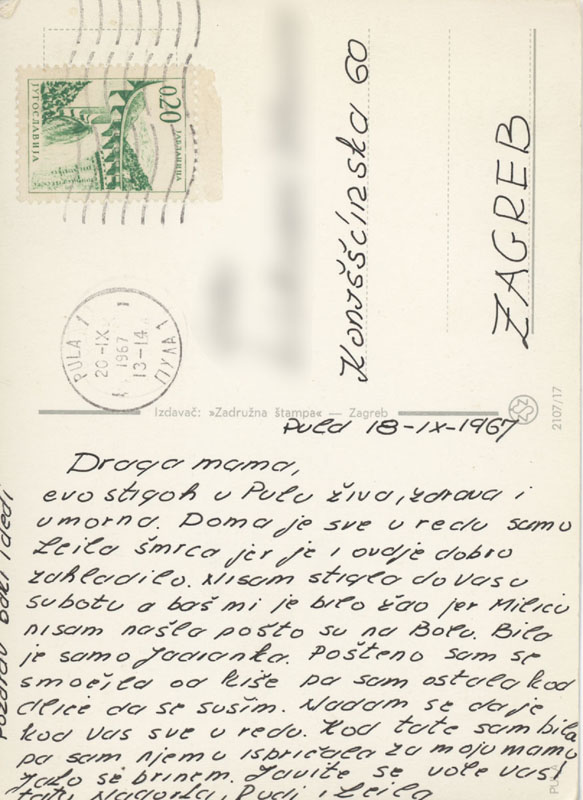 0,20
ЈУГОСЛАВИЈА
PULA 1
20-IX
1967
13-14
ПУЛА 1
Konjšćinska 60
ZAGREB
Izdavač: »Zadružna štampa« — Zagreb
2107/17
Pula 18-IX-1967
Draga mama,
evo stigoh u Pulu živa, zdrava i
umorna. Doma je sve u redu samo
Leila šmrca jer je i ovdje dobro
zahladilo. Nisam stigla do vas u
subotu a baš mi je bilo žao jer Milicu
nisam našla pošto su na Bolu. Bila
je samo Jadranka. Pošteno sam se
smočila od kiše pa sam ostala kod
Alice da se sušim. Nadam se da je
kod vas sve u redu. Kod tate sam bila
pa sam njemu ispričala za moju mamu
jako se brinem. Javite se, vole vas!
Rudi i Leila
Pozdrav baki i dedi
PULA